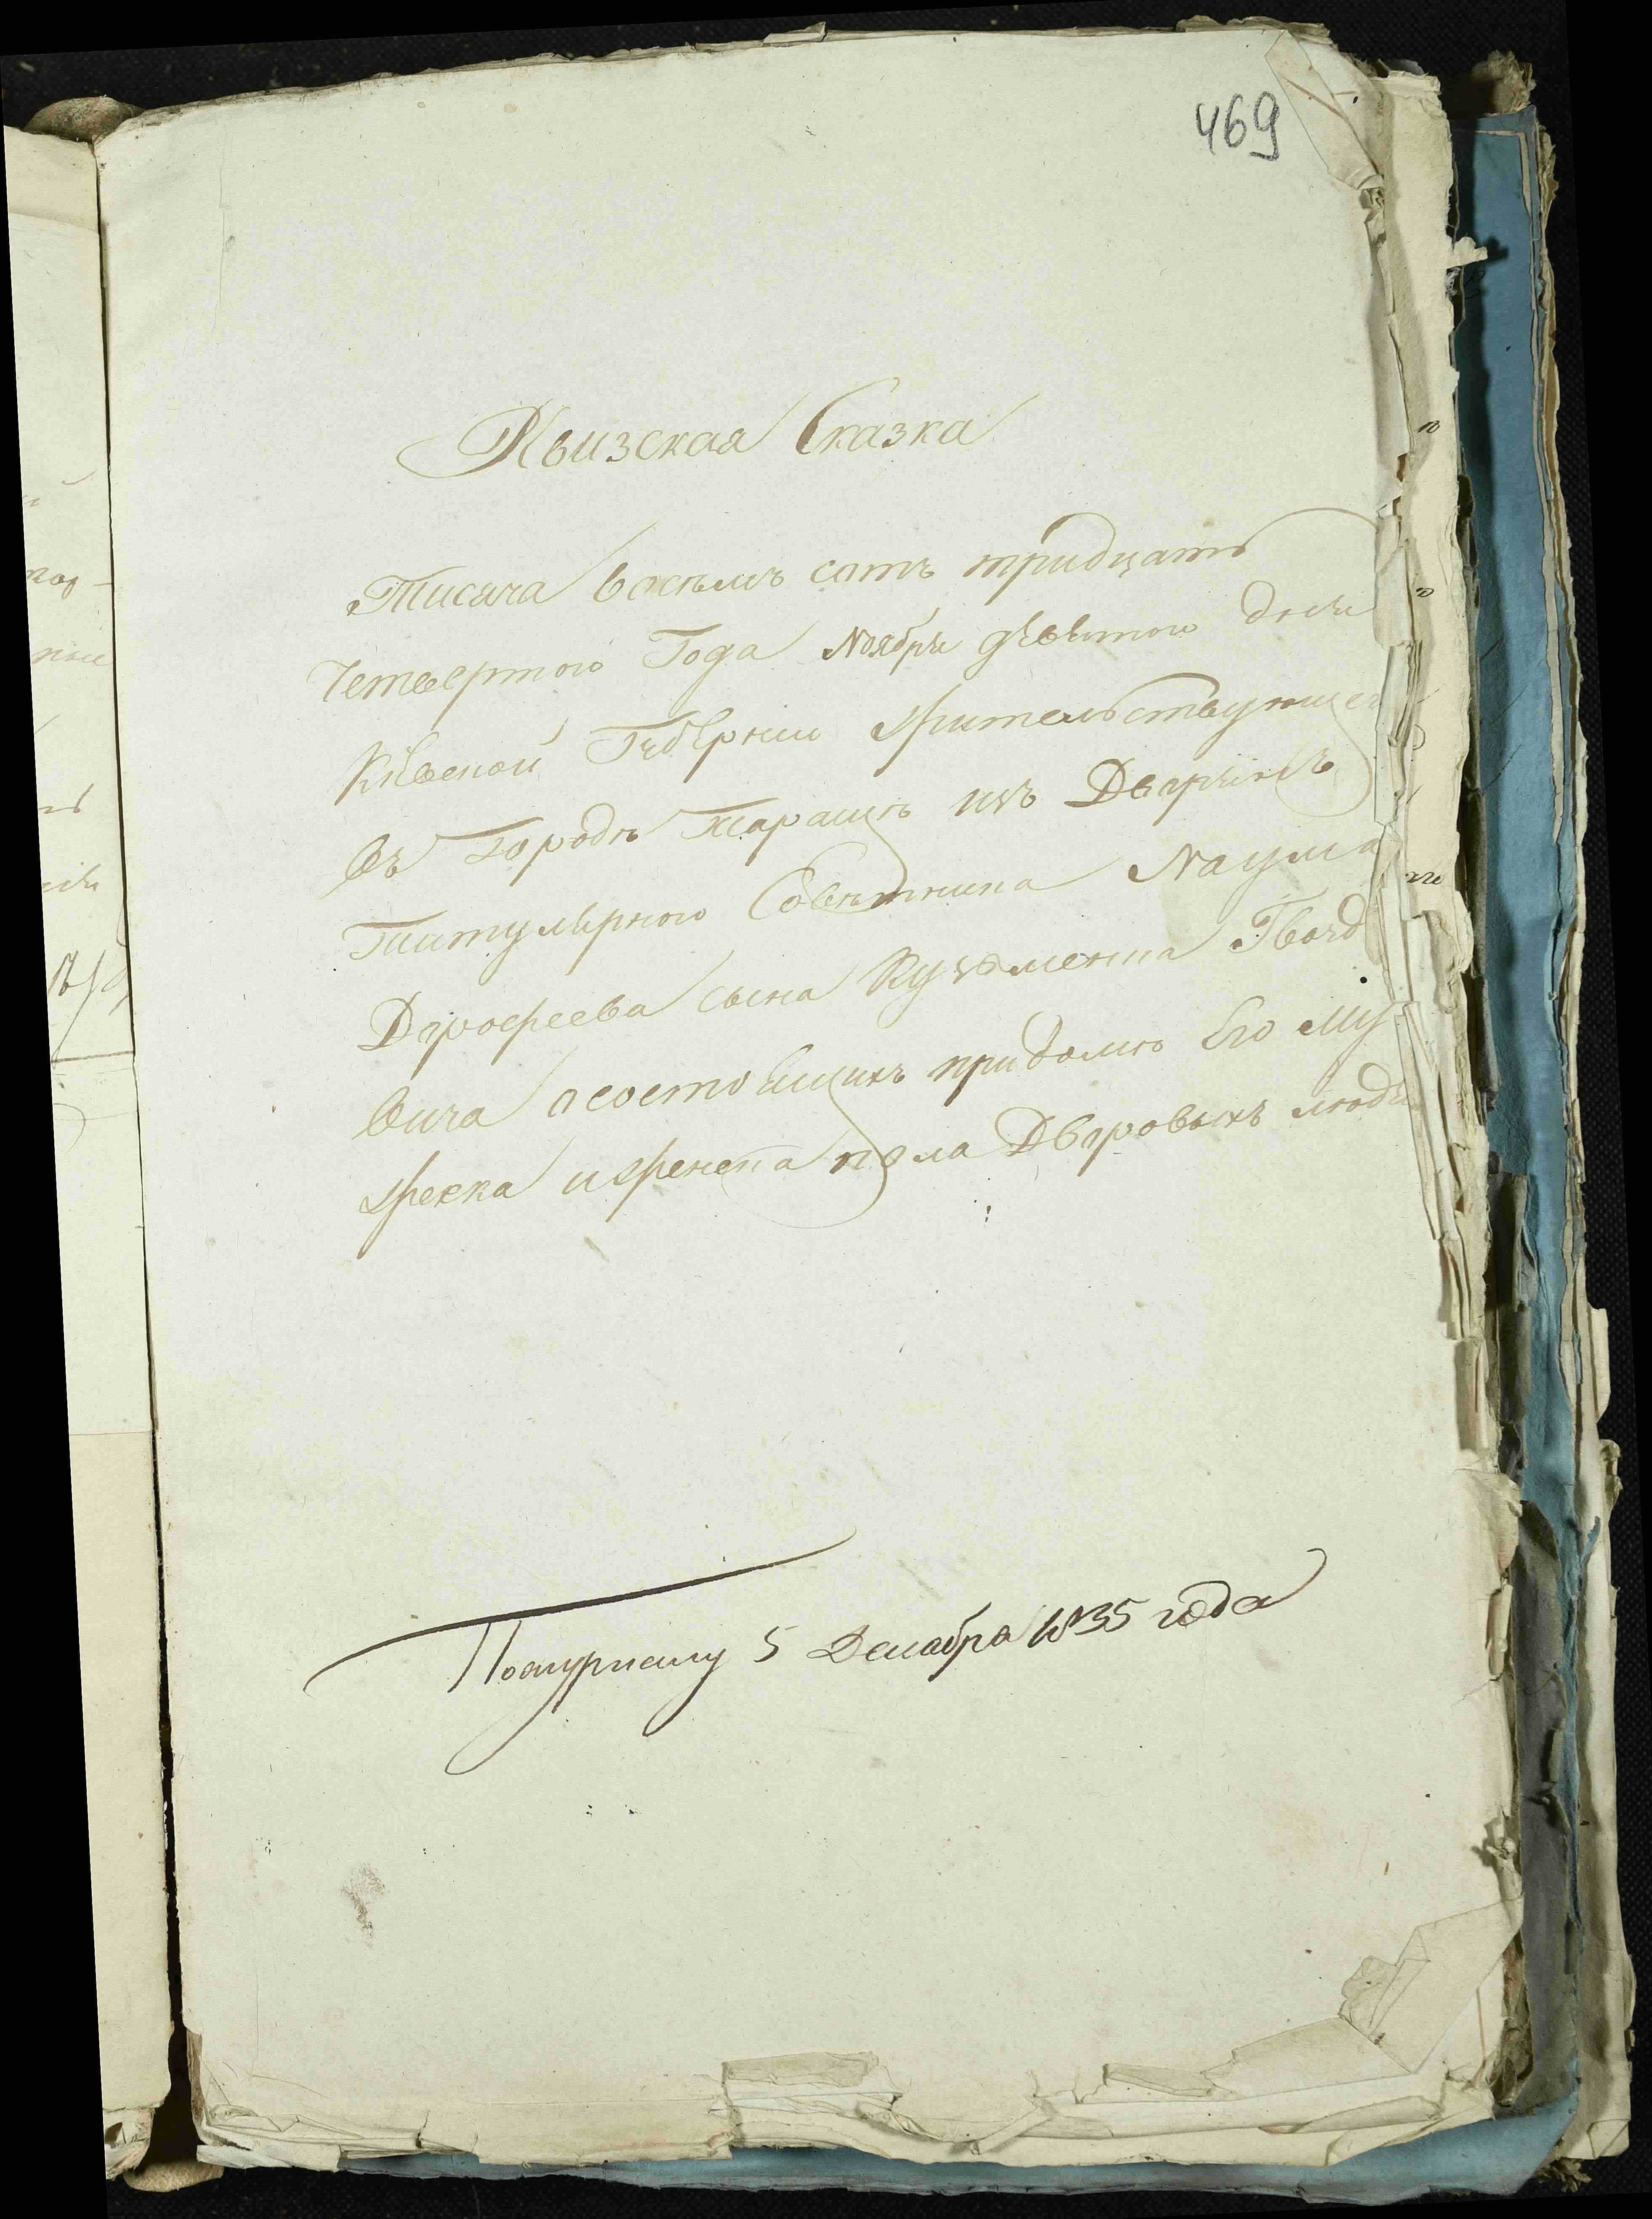 469
Ревизская Сказка
Тисяча восемъ сотъ тридцать
Четвертого Года Ноября девятого дня
Киевской Губернии жительствующего
въ Городѣ Таращѣ изъ Дворянъ
Титулярного Совѣтника Наума
Дорофеева сына Кузьменка Гвозд
вича о состоящихъ при домѣ Его муж
жеска и женска пола Дворовыхъ людя
5 Декабря 1835 года